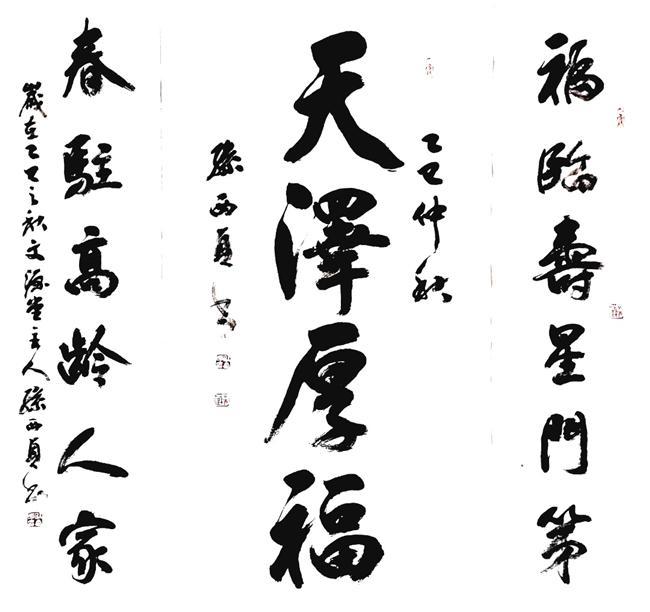 福臨壽星門第
乙巳仲秋
天澤厚福
孫西貞書
春駐高齡人家
歲在乙巳之秋文堂主人孫西貞書